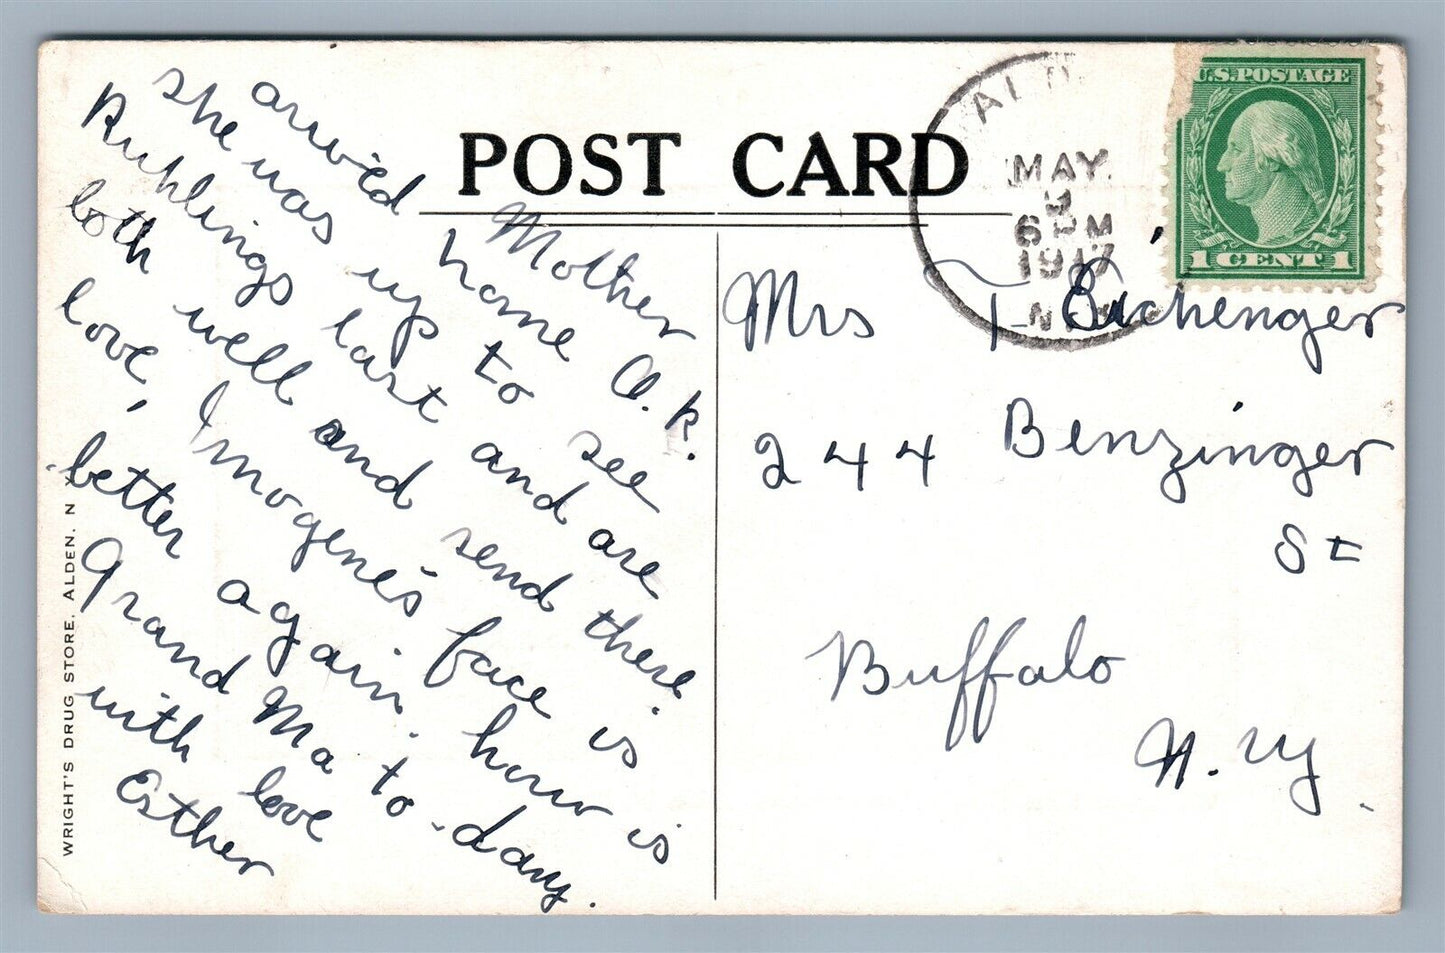 POST CARD
Mother
arrived home O.K.
she was up to see
Ruhlings last and are
both well and send there
love, Imogene's face is
better again. how is
Grand Ma to-day.
with love
Esther
WRIGHT'S DRUG STORE. ALDEN. N Y
ALD
MAY.
6 PM
1917
N.Y.
U.S. POSTAGE
1 CENT 1
Mrs
244 Benzinger
St
Buffalo
N. Y.